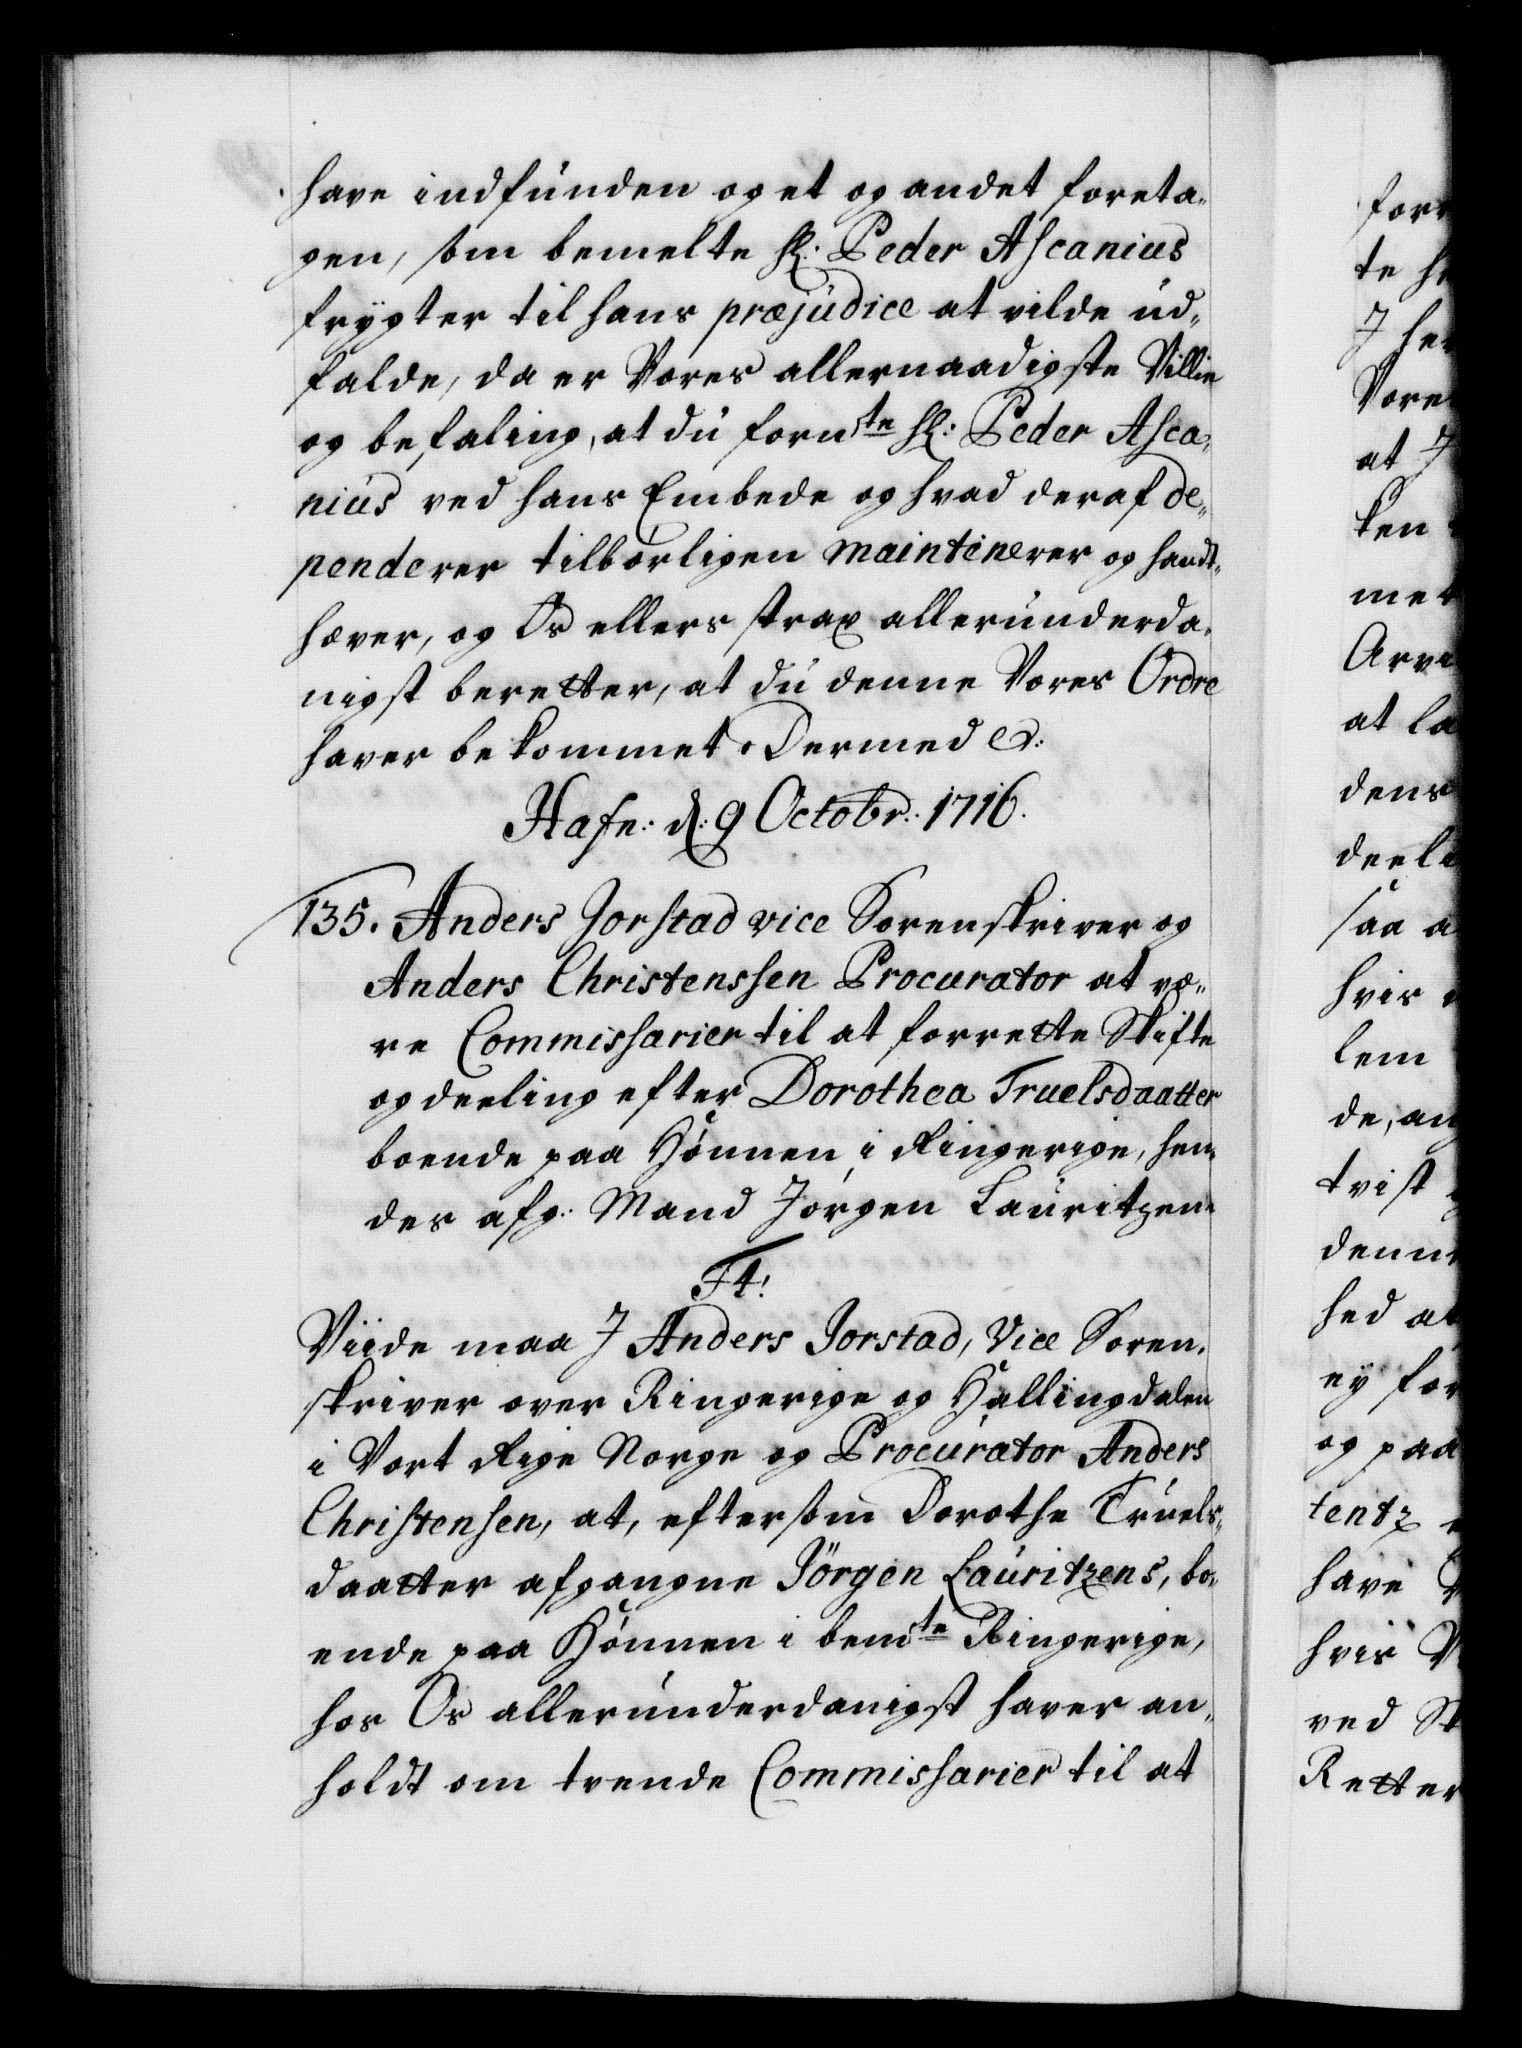 have indfunden og et og andet foreta„
gen, som bemelte Hr: Peder Ascanius
frygter til hans præjudice at vilde ud„
falde, da er Vores allernaadigste Villie
og befaling, at du fornte Hr: Peder Asca„
nius ved hans Embede og hvad deraf de„
penderer tilbørligen maintinerer og handt„
hæver, og Os ellers strax allerunderda„
nigst beretter, at du denne Vores Ordre
haver bekommet. Dermed &:
Hafn: d: 9 Octobr: 1716.
135. Anders Jorstad vice Sorenskriver og
Anders Christenssen Procurator at væ„
re Commissarier til at forrette Skifte
og deeling efter Dorothea Truelsdaatter
boende paa Hønnen i Ringerige, hen„
des afg: Mand Jørgen Lauritzen„
F4:
Viide maa I Anders Jorstad, Vice Soren„
skriver over Ringerige og Hallingdalen
i Vort Rige Norge og Procurator Anders
Christensen, at, eftersom Dorothe Truels„
daatter afgangne Jörgen Lauritzens, bo„
ende paa Hønnen i bemte Ringerige,
hos Os allerunderdanigst haver an„
holdt om tvende Commissarier til at
for
te
I her
Vore
at I
ken
met
Arv
at la
dens
deel
saa a
hvis
lem
de, an
tvist
denn
hed at
ey for
og paa
tentz
have
hvis V
ved St
Retter